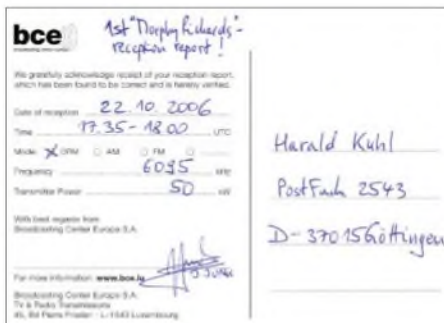 bce
1st "Morphy Richards"-
reception report!
We gratefully acknowledge receipt of your reception report,
which has been found to be correct and is hereby verified.
Date of reception 22.10.2006
Time 17.35-18.00 UTC
Mode: X DRM O AM O FM O
Frequency 6095 kHz
Transmitter Power 50 kW
With best regards from
Broadcasting Center Europe S.A.
For more information: www.bce.lu
Broadcasting Center Europe S.A.
TV & Radio Transmissions
45, Bd Pierre Frieden - L-1543 Luxembourg
Harald Kuhl
Postfach 2543
D-37015 Göttingen